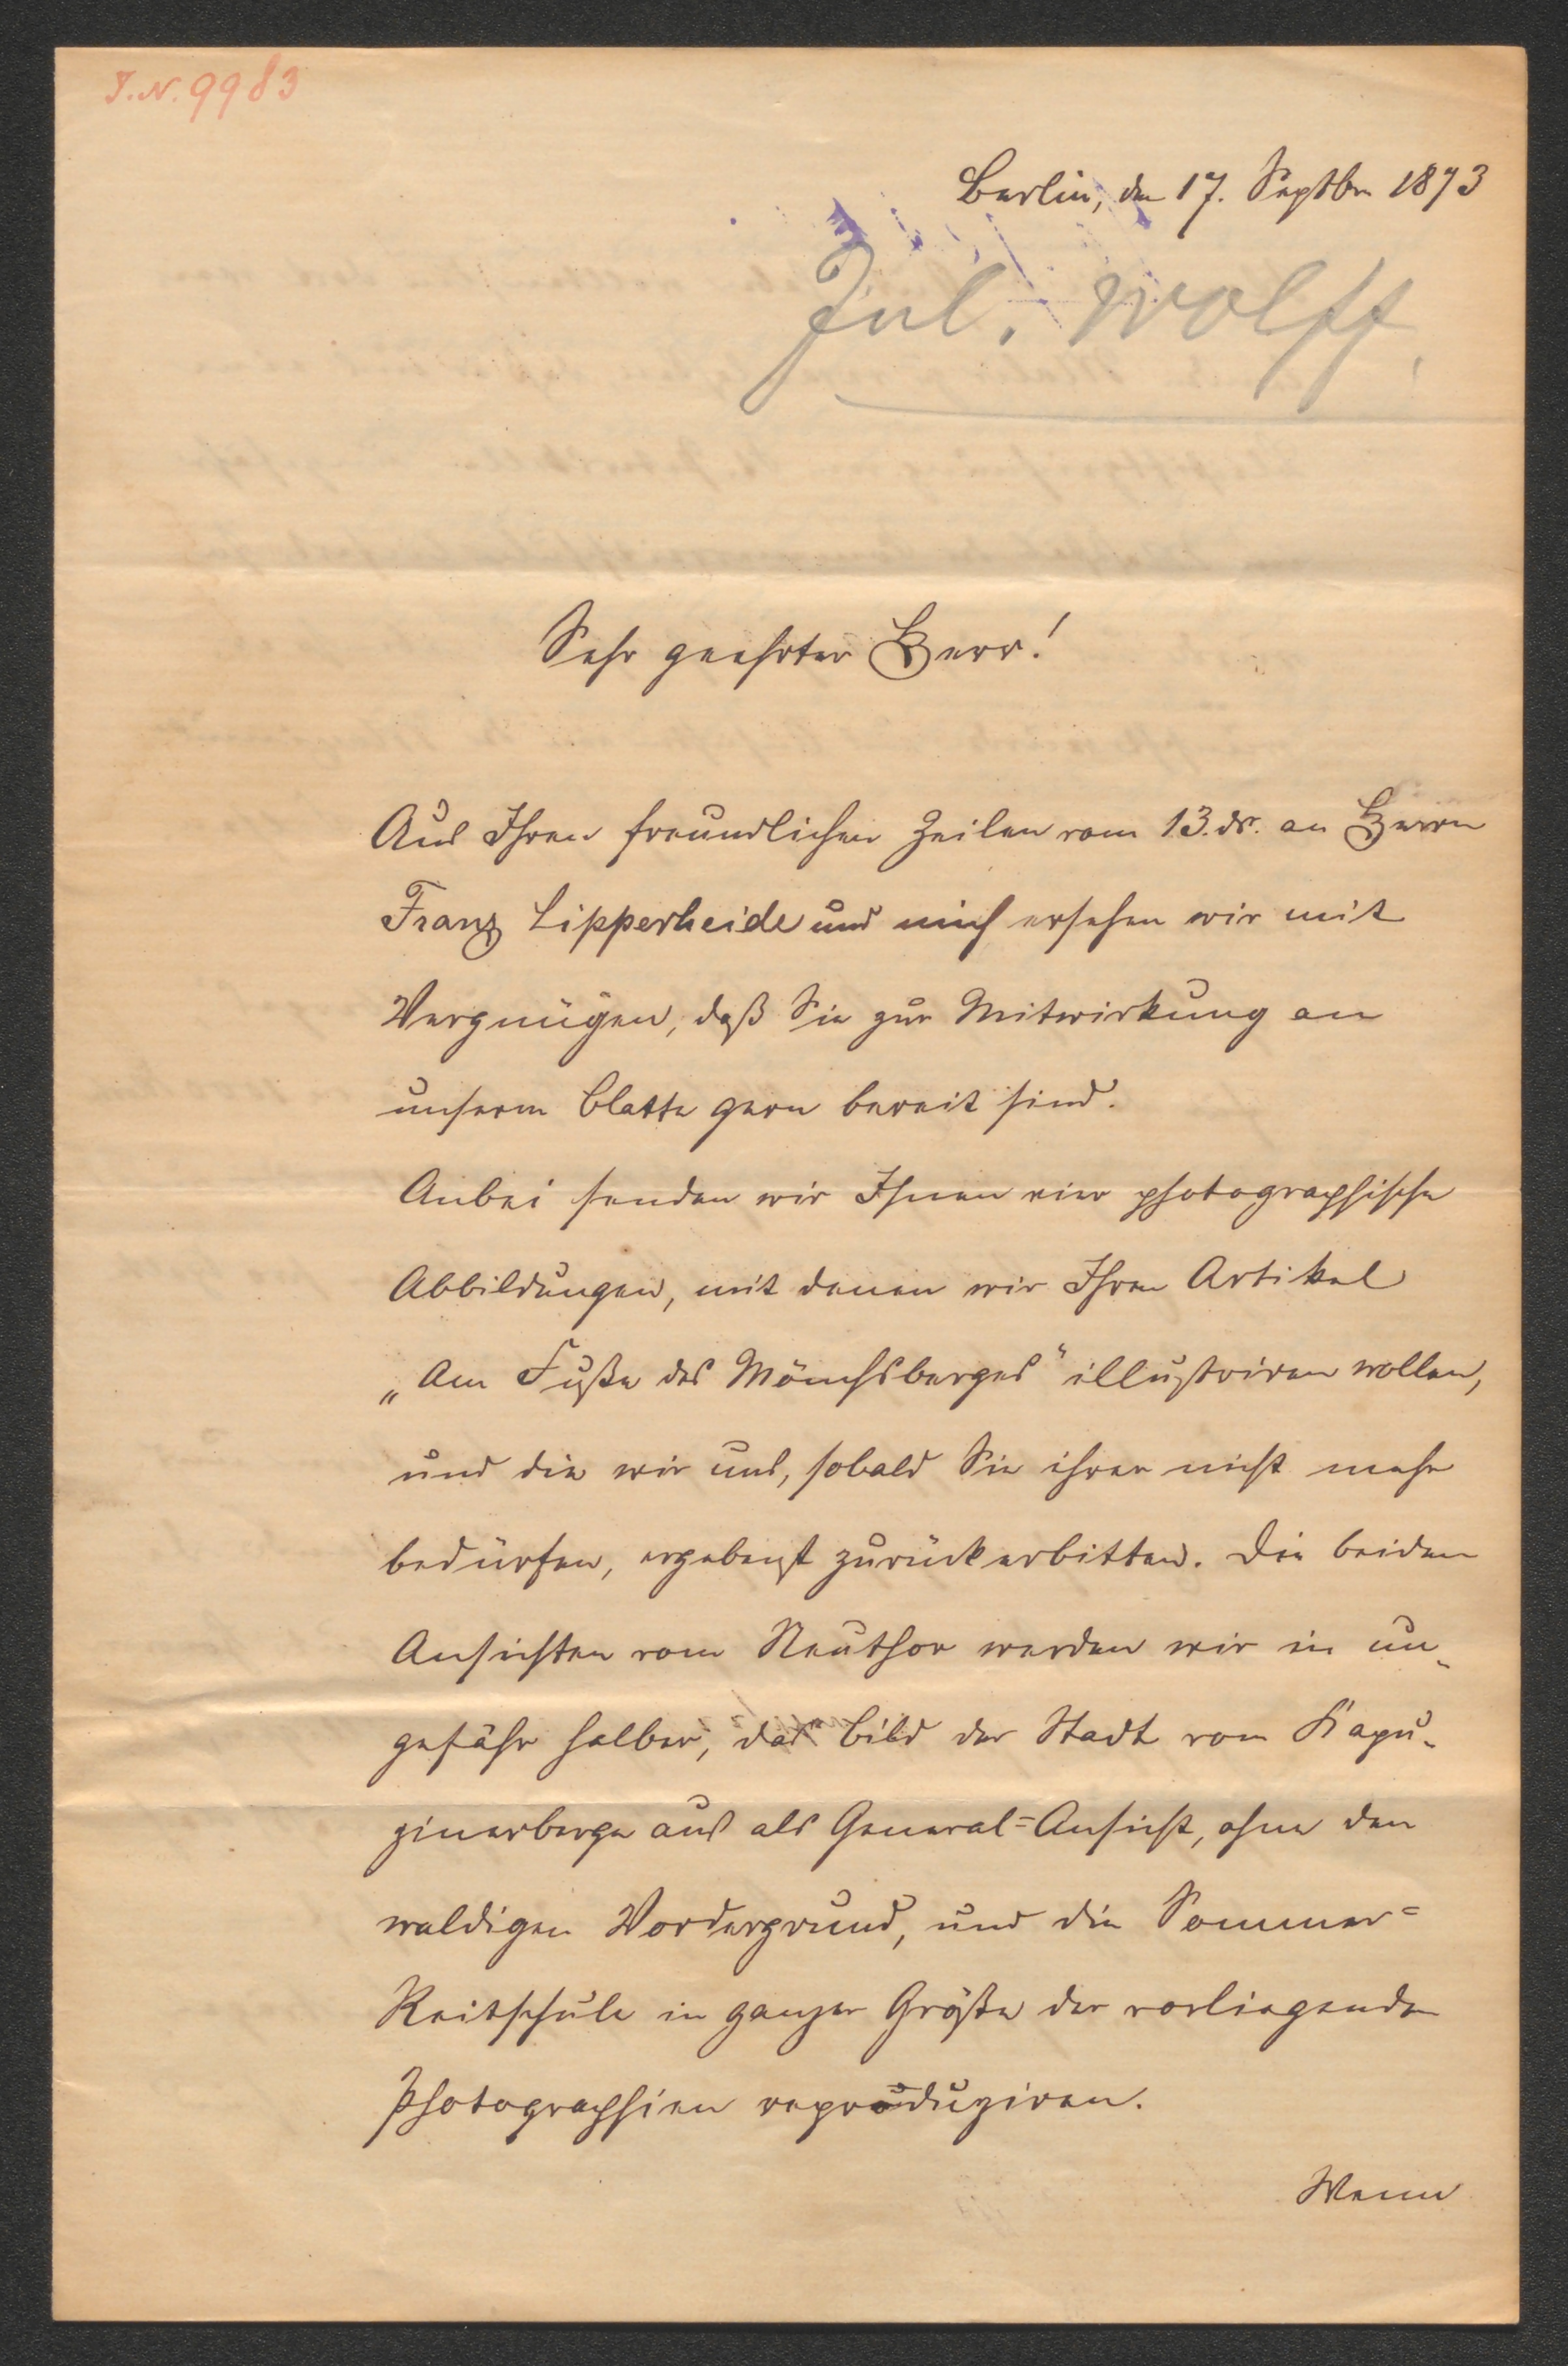 J.N. 9983
Berlin, den 17. Septbr 1873
Jul. Wolff.
Sehr geehrter Herr!
Aus Ihren freundlichen Zeilen vom 13. ds. an Herrn
Franz Lipperheide und mich ersehen wir mit
Vergnügen, daß Sie zur Mitwirkung an
unserm Blatte gern bereit sind.
Anbei senden wir Ihnen vier photographische
Abbildungen, mit denen wir Ihren Artikel
„Am Fuße des Mönchsberges“ illustriren wollen,
und die wir uns, sobald Sie ihrer nicht mehr
bedürfen, ergebenst zurückerbitten. Die beiden
Ansichten vom Neuthor werden wir in un-
gefähr halber, das Bild der Stadt vom Kapu-
zinerberge aus als General-Ansicht, ohne den
waldigen Vordergrund, und die Sommer-
Reitschule in ganzer Größe der vorliegenden
Photographien reproduziren.
Wenn